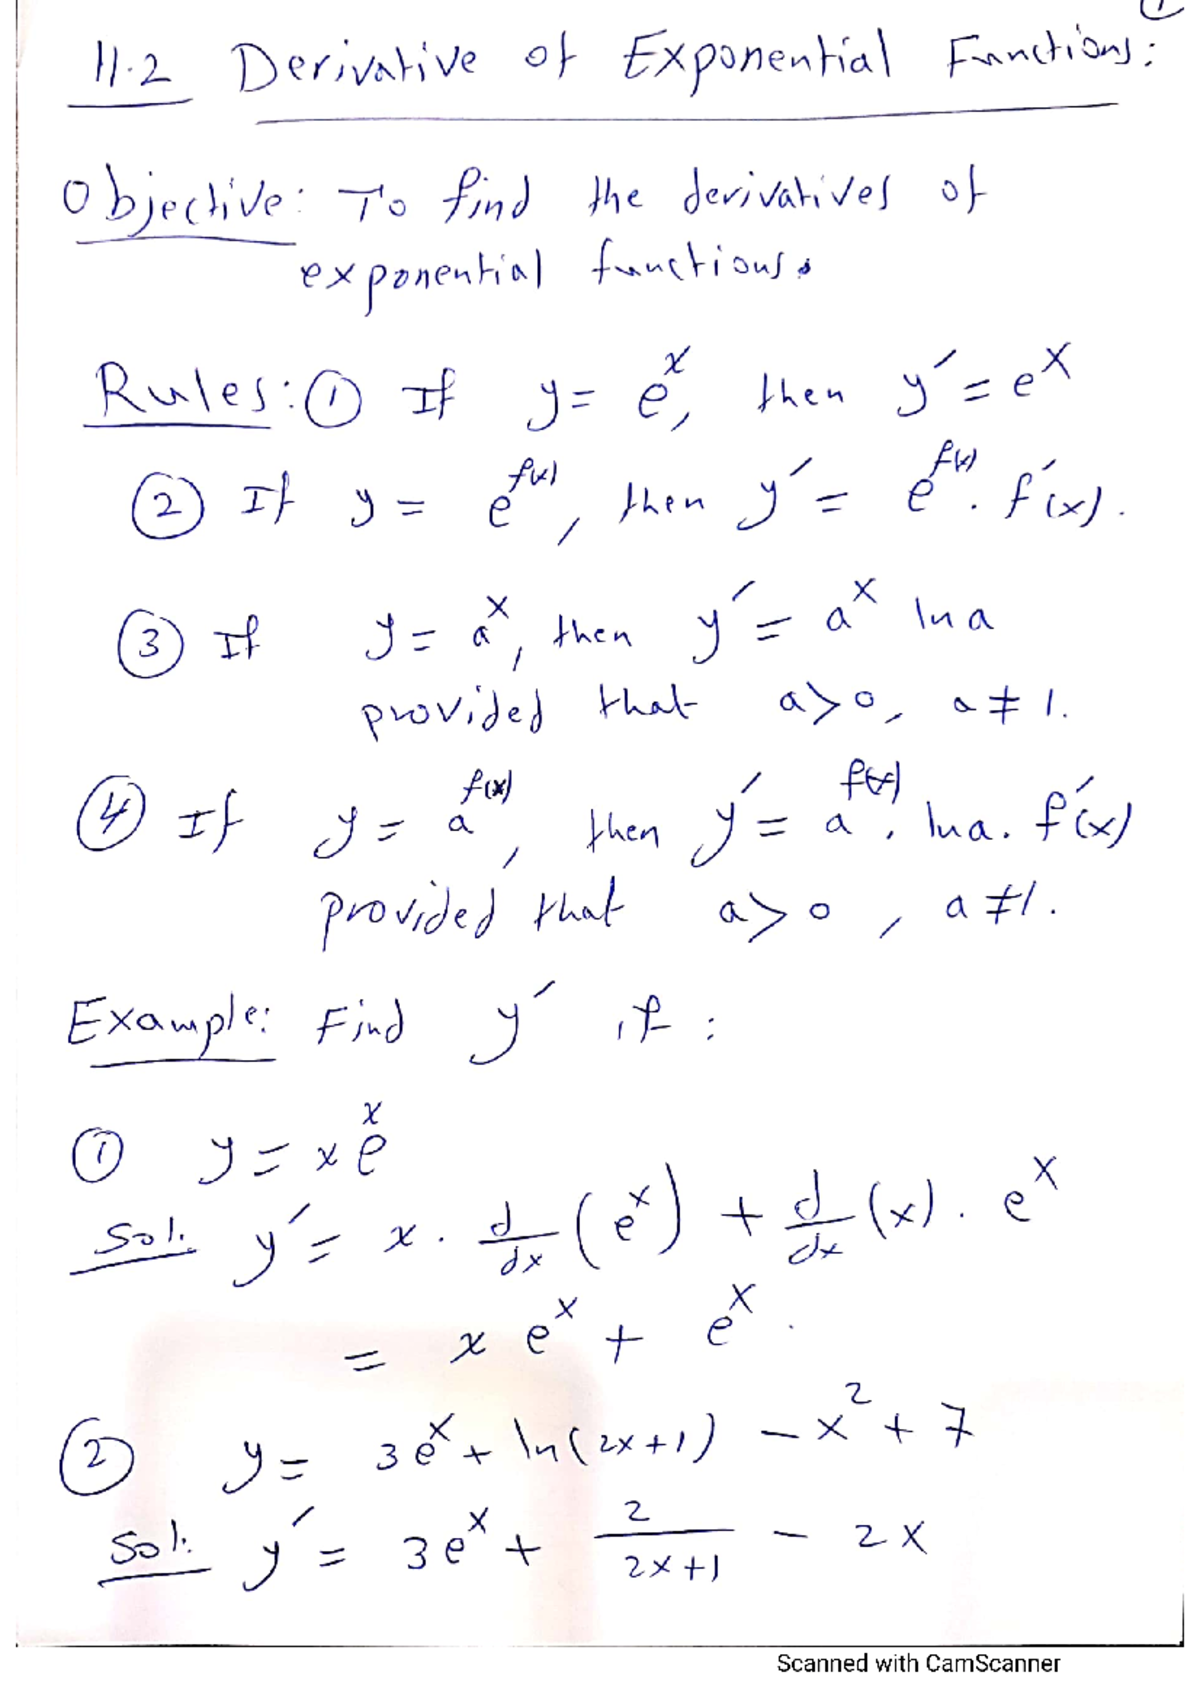 1
11.2 Derivative of Exponential Functions:
Objective: To find the derivatives of
exponential functions.
Rules: ① If y = e^x, then y′ = e^x
② If y = e^f(x), then y′ = e^f(x) . f′(x).
③ If y = a^x, then y′ = a^x ln a
provided that a > 0, a ≠ 1.
④ If y = a^f(x), then y′ = a^f(x) . ln a . f′(x)
provided that a > 0, a ≠ 1.
Example: Find y′ if :
① y = x e^x
Sol: y′ = x . d/dx (e^x) + d/dx (x) . e^x
= x e^x + e^x .
② y = 3e^x + ln(2x+1) – x^2 + 7
Sol: y′ = 3e^x + 2/(2x+1) – 2x
Scanned with CamScanner